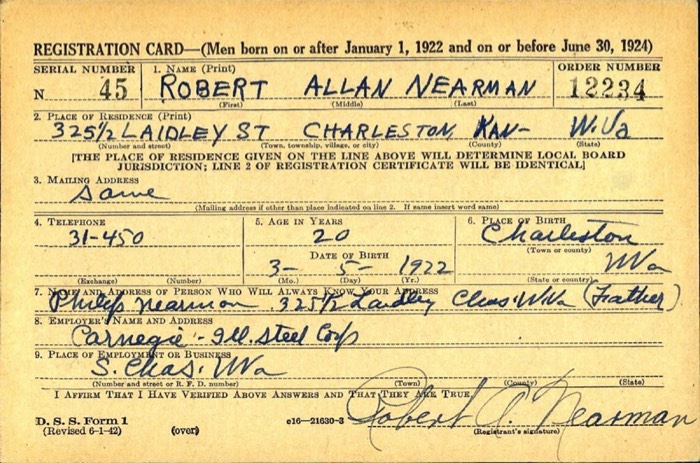 REGISTRATION CARD—(Men born on or after January 1, 1922 and on or before June 30, 1924)
SERIAL NUMBER 1. NAME (Print) ORDER NUMBER
N 45 ROBERT ALLAN NEARMAN 12234
(First) (Middle) (Last)
2. PLACE OF RESIDENCE (Print)
325 1/2 LAIDLEY ST CHARLESTON, KAN- W.Va
(Number and street) (Town, township, village, or city) (County) (State)
[THE PLACE OF RESIDENCE GIVEN ON THE LINE ABOVE WILL DETERMINE LOCAL BOARD
JURISDICTION; LINE 2 OF REGISTRATION CERTIFICATE WILL BE IDENTICAL]
3. MAILING ADDRESS
Same
(Mailing address if other than place indicated on line 2. If same insert word same)
4. TELEPHONE 5. AGE IN YEARS 6. PLACE OF BIRTH
31-450 20 Charleston
(Town or county)
DATE OF BIRTH
3- 5- 1922 WVa
(Exchange) (Number) (Mo.) (Day) (Yr.) (State or country)
7. NAME AND ADDRESS OF PERSON WHO WILL ALWAYS KNOW YOUR ADDRESS
Philip Nearman 325 1/2 Laidley Chas. WVa (Father)
8. EMPLOYER'S NAME AND ADDRESS
Carnegie - Ill. Steel Corp
9. PLACE OF EMPLOYMENT OR BUSINESS
S. Chas. WVa
(Number and street or R. F. D. number) (Town) (County) (State)
I AFFIRM THAT I HAVE VERIFIED ABOVE ANSWERS AND THAT THEY ARE TRUE.
Robert A. Nearman
D. S. S. Form 1
(Revised 6-1-42) (over) c16—21630-3 (Registrant's signature)